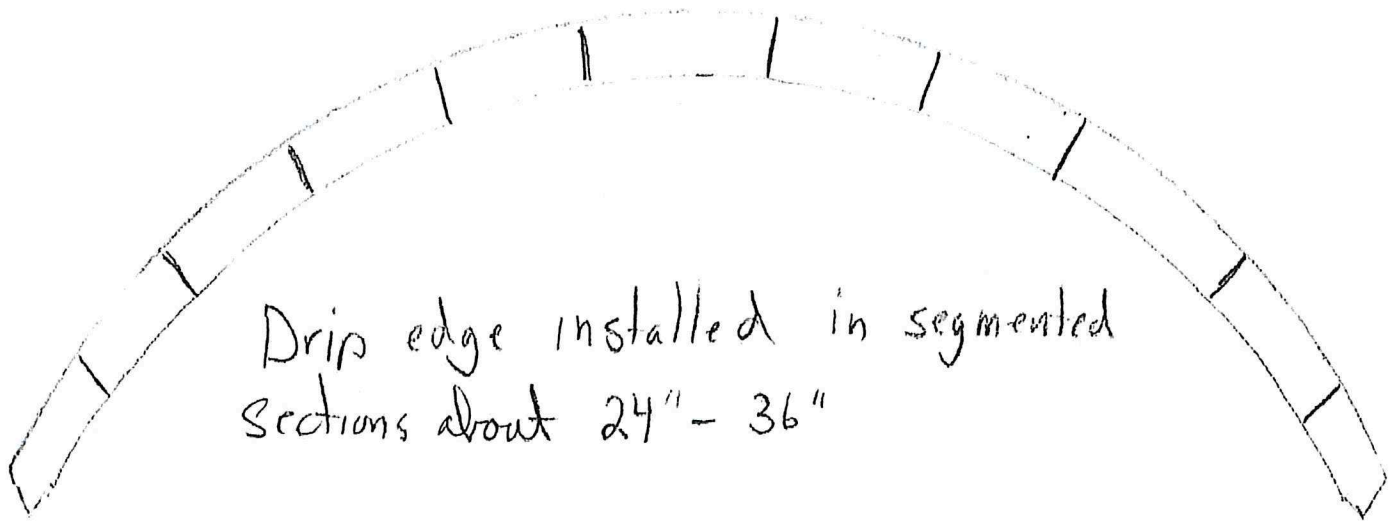 Drip edge installed in segmented
Sections about 24" - 36"